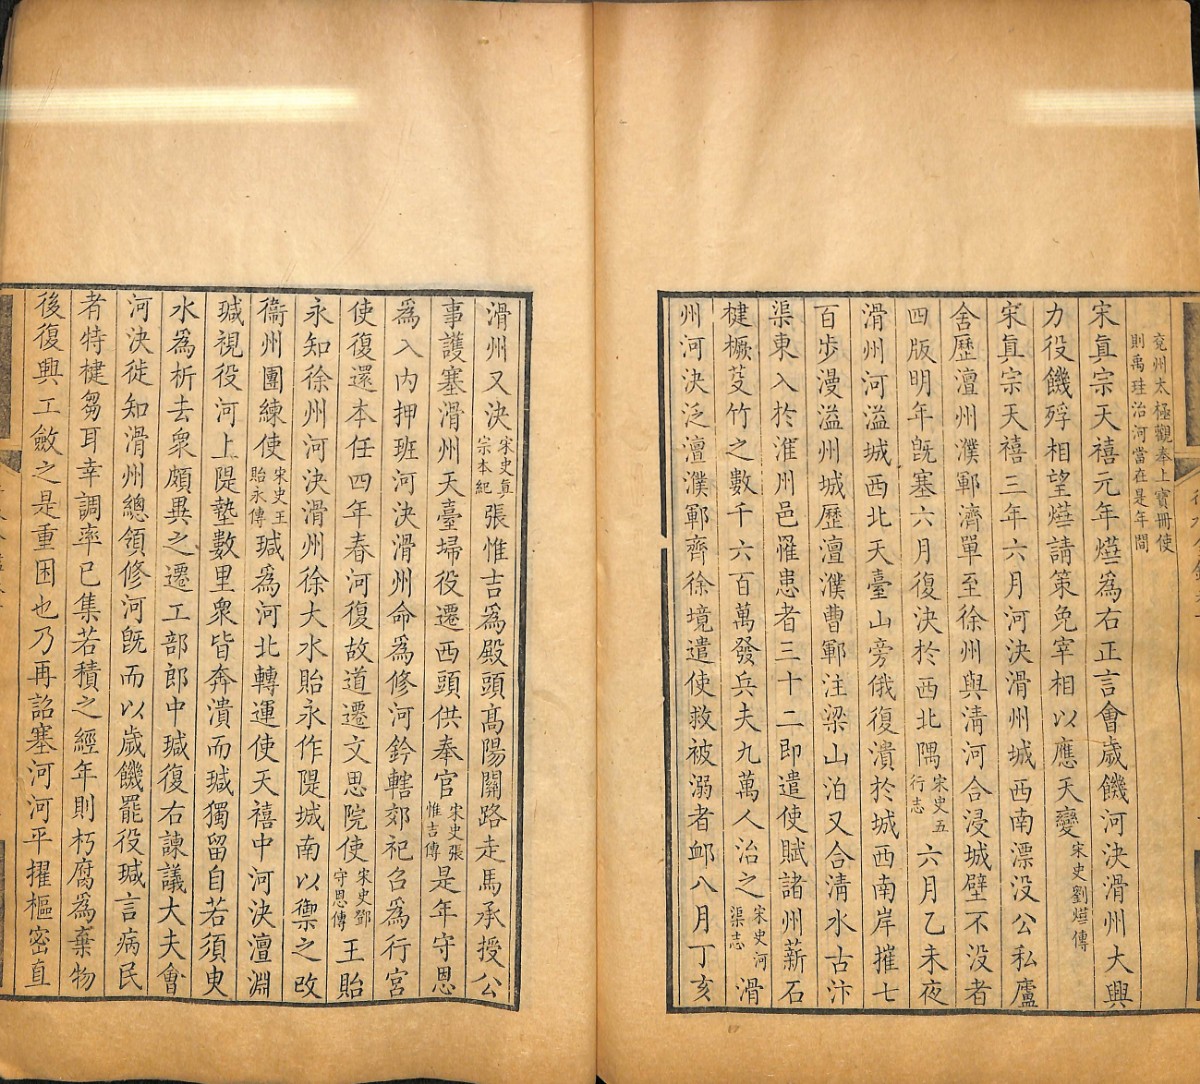 兗州太極觀奉上寶冊使
則禹珪治河當在是年間
宋真宗天禧元年爗為右正言會歲饑河決滑州大興
力役饑殍相望爗請策免宰相以應天變宋史劉爗傳
宋真宗天禧三年六月河決滑州城西南漂没公私廬
舍歷澶州濮鄆濟單至徐州與淸河合浸城壁不没者
四版明年旣塞六月復決於西北隅宋史五行志六月乙未夜
滑州河溢城西北天臺山旁俄復潰於城西南岸摧七
百步漫溢州城歷澶濮曹鄆注梁山泊又合清水古汴
渠東入於淮州邑罹患者三十二即遣使賦諸州薪石
楗橛芟竹之數千六百萬發兵夫九萬人治之宋史河渠志滑
州河決泛澶濮鄆齊徐境遣使救被溺者卹八月丁亥
滑州又決宋史真宗本紀張惟吉爲殿頭高陽關路走馬承授公
事護塞滑州天臺埽役遷西頭供奉官宋史張惟吉傳是年守恩
為入内押班河決滑州命爲修河鈐轄郊祀召爲行宮
使復還本任四年春河復故道遷文思院使宋史鄧守恩傳王貽
永知徐州河決滑州徐大水貽永作隄城南以禦之改
衞州團練使宋史王貽永傳瑊爲河北轉運使天禧中河決澶淵
瑊視役河上隄墊數里衆皆奔潰而瑊獨留自若須臾
水爲析去衆頗異之遷工部郎中瑊復右諫議大夫會
河決徙知滑州總領修河旣而以歲饑罷役瑊言病民
者特楗芻耳幸調率已集若積之經年則朽腐爲棄物
後復興工斂之是重困也乃再詔塞河河平擢樞密直